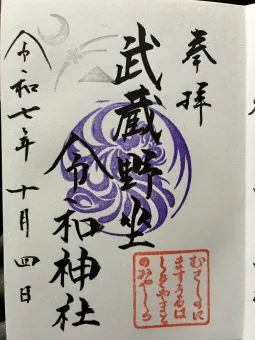 奉拝
武蔵野坐
令和神社
令和七年十月四日
むさしのに
ますうるは
しきやまと
のみやしろ